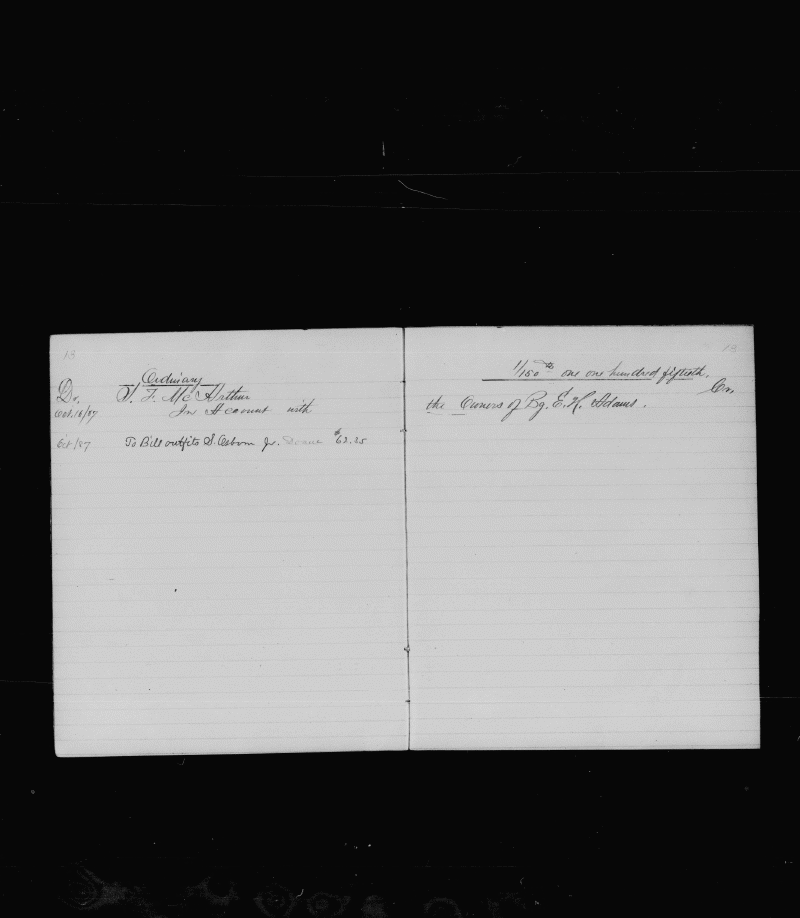 18
Ordinary
Dr. T. F. McArthur
Oct. 16/87 In Account with
Oct/87 To Bill outfits S. Osborn Jr. $62.25
18
1/150th one one hundred fiftieth.
Cr.
the Owners of Bg. E. H. Adams.